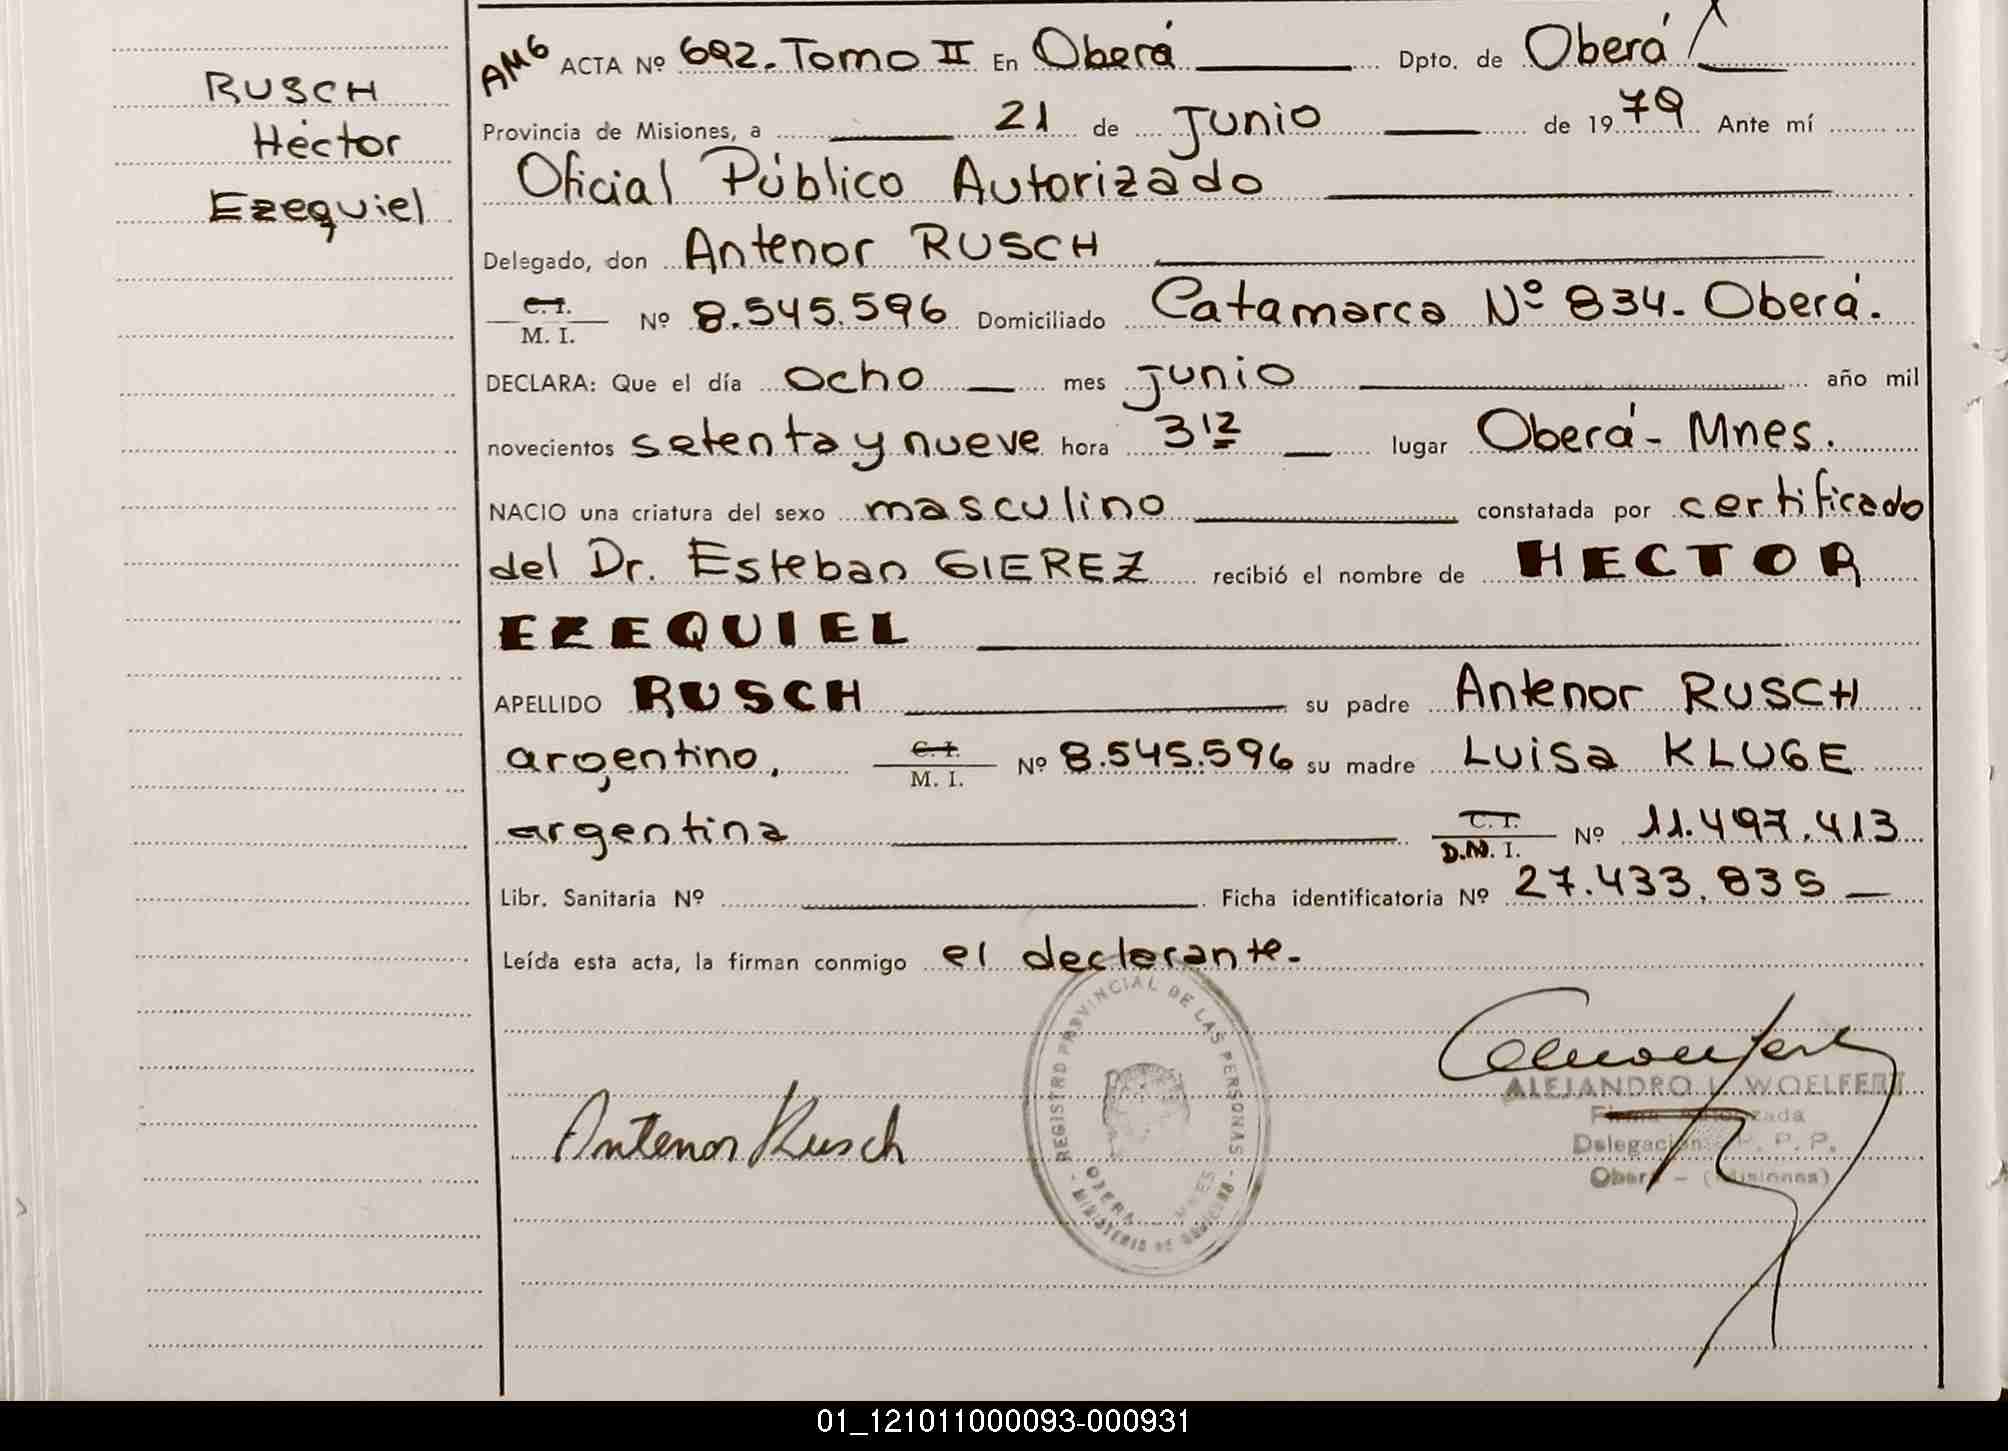 RUSCH
Héctor
Ezequiel
AMG ACTA Nº 692. Tomo II En Oberá Dpto. de Oberá
Provincia de Misiones, a 21 de Junio de 1979 Ante mí
Oficial Público Autorizado
Delegado, don Antenor RUSCH
C.I.
M. I. Nº 8.545.596 Domiciliado Catamarca Nº 834. Oberá.
DECLARA: Que el día ocho mes junio año mil
novecientos setenta y nueve hora 3 12 lugar Oberá - Mnes.
NACIO una criatura del sexo masculino constatada por certificado
del Dr. Esteban GIEREZ recibió el nombre de HECTOR
EZEQUIEL
APELLIDO RUSCH su padre Antenor RUSCH
argentino, C. I.
M. I. Nº 8.545.596 su madre Luisa KLUGE
argentina C. I.
D.N. I. Nº 11.497.413
Libr. Sanitaria Nº Ficha identificatoria Nº 27.433.835
Leída esta acta, la firman conmigo el declarante.
REGISTRO PROVINCIAL DE LAS PERSONAS
OBERA MNES
MINISTERIO DE GOBIERNO
Antenor Rusch
ALEJANDRO L. WOELFERT
Firma Autorizada
Delegación R. P. P.
Oberá - (Misiones)
01_121011000093-000931